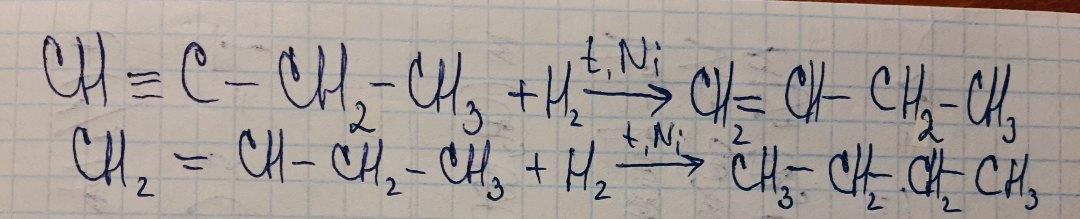 CH ≡ C – CH₂ – CH₃ + H₂ →(t, Ni) CH₂ = CH – CH₂ – CH₃
CH₂ = CH – CH₂ – CH₃ + H₂ →(t, Ni) CH₃ – CH₂ – CH₂ – CH₃